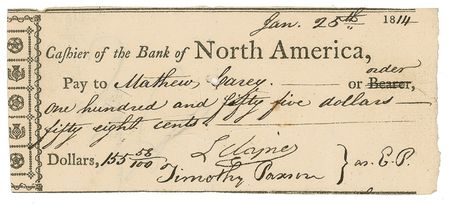 Jan. 25th 1814
Cashier of the Bank of North America,
order
Pay to Mathew Carey or Bearer,
one hundred and fifty five dollars
fifty eight cents
Dollars, 155 58/100
Timothy Paxson } as. E. P.